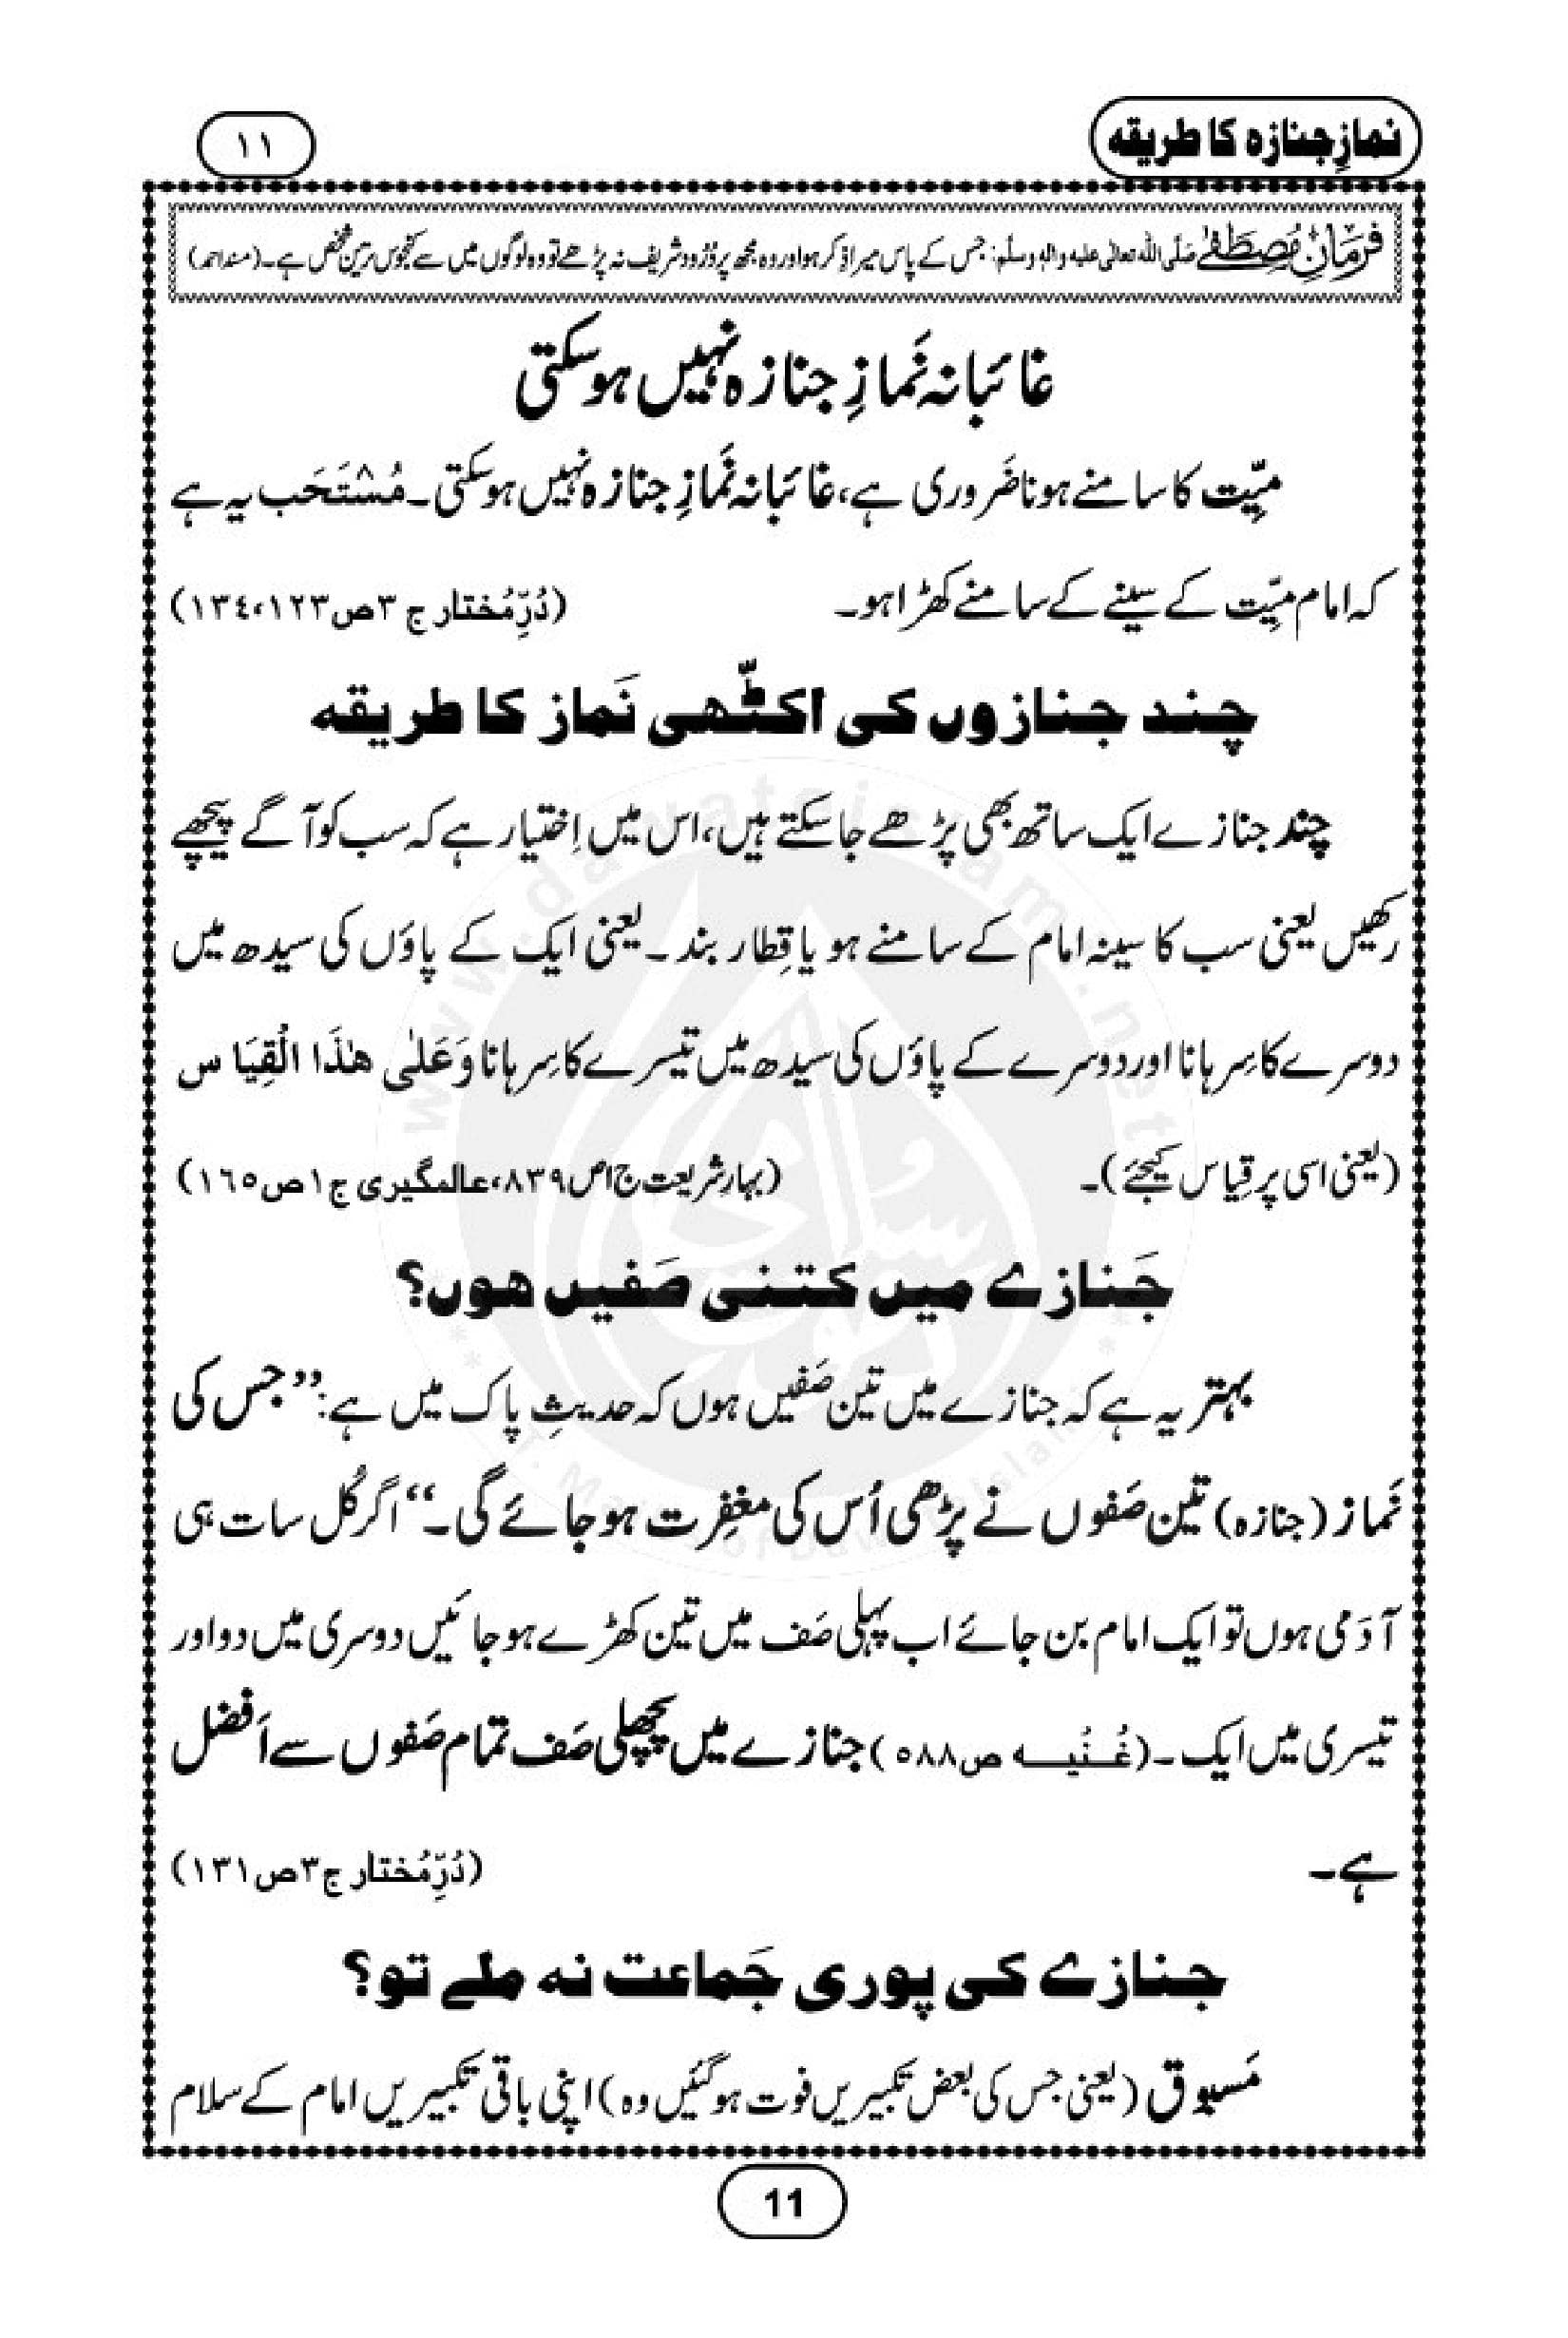 نمازِ جنازہ کا طریقہ
١١
فرمانِ مُصطَفٰے صلَّی اللہ تعالٰی علیہ واٰلہٖ وسلَّم: جس کے پاس میرا ذِکر ہو اور وہ مجھ پر دُرُود شریف نہ پڑھے تو وہ لوگوں میں سے کنجوس ترین شخص ہے۔ (مسند احمد)
غائبانہ نَمازِ جنازہ نہیں ہوسکتی
میِّت کا سامنے ہونا ضَروری ہے، غائبانہ نَمازِ جنازہ نہیں ہوسکتی۔ مُسْتَحَب یہ ہے
کہ امام میِّت کے سینے کے سامنے کھڑا ہو۔ (دُرِّمُختار ج ۳ ص ۱۲۳، ۱۳٤)
چند جنازوں کی اکٹّھی نَماز کا طریقہ
چند جنازے ایک ساتھ بھی پڑھے جاسکتے ہیں، اس میں اِختیار ہے کہ سب کو آگے پیچھے
رکھیں یعنی سب کا سینہ امام کے سامنے ہو یا قِطار بند۔ یعنی ایک کے پاؤں کی سیدھ میں
دوسرے کا سِرہانا اور دوسرے کے پاؤں کی سیدھ میں تیسرے کا سِرہانا وَعَلٰی ھٰذَا الْقِیَاس
(یعنی اسی پر قِیاس کیجئے)۔ (بہارِ شریعت ج۱ ص۸۳۹، عالمگیری ج۱ ص۱٦٥)
جَنازے میں کتنی صَفیں ہوں؟
بہتر یہ ہے کہ جنازے میں تین صَفیں ہوں کہ حدیثِ پاک میں ہے: ”جس کی
نَماز (جنازہ) تین صَفوں نے پڑھی اُس کی مغفِرت ہو جائے گی۔“ اگر کُل سات ہی
آدَمی ہوں تو ایک امام بن جائے اب پہلی صَف میں تین کھڑے ہو جائیں دوسری میں دو اور
تیسری میں ایک۔ (غُنْیہ ص٥۸۸) جنازے میں پچھلی صَف تمام صَفوں سے اَفضل
ہے۔ (دُرِّمُختار ج۳ ص۱۳۱)
جنازے کی پوری جَماعت نہ ملے تو؟
مَسبوق (یعنی جس کی بعض تکبیریں فوت ہو گئیں وہ) اپنی باقی تکبیریں امام کے سلام
11
www.dawateislami.net
I.T. Majlis of DawateIslami